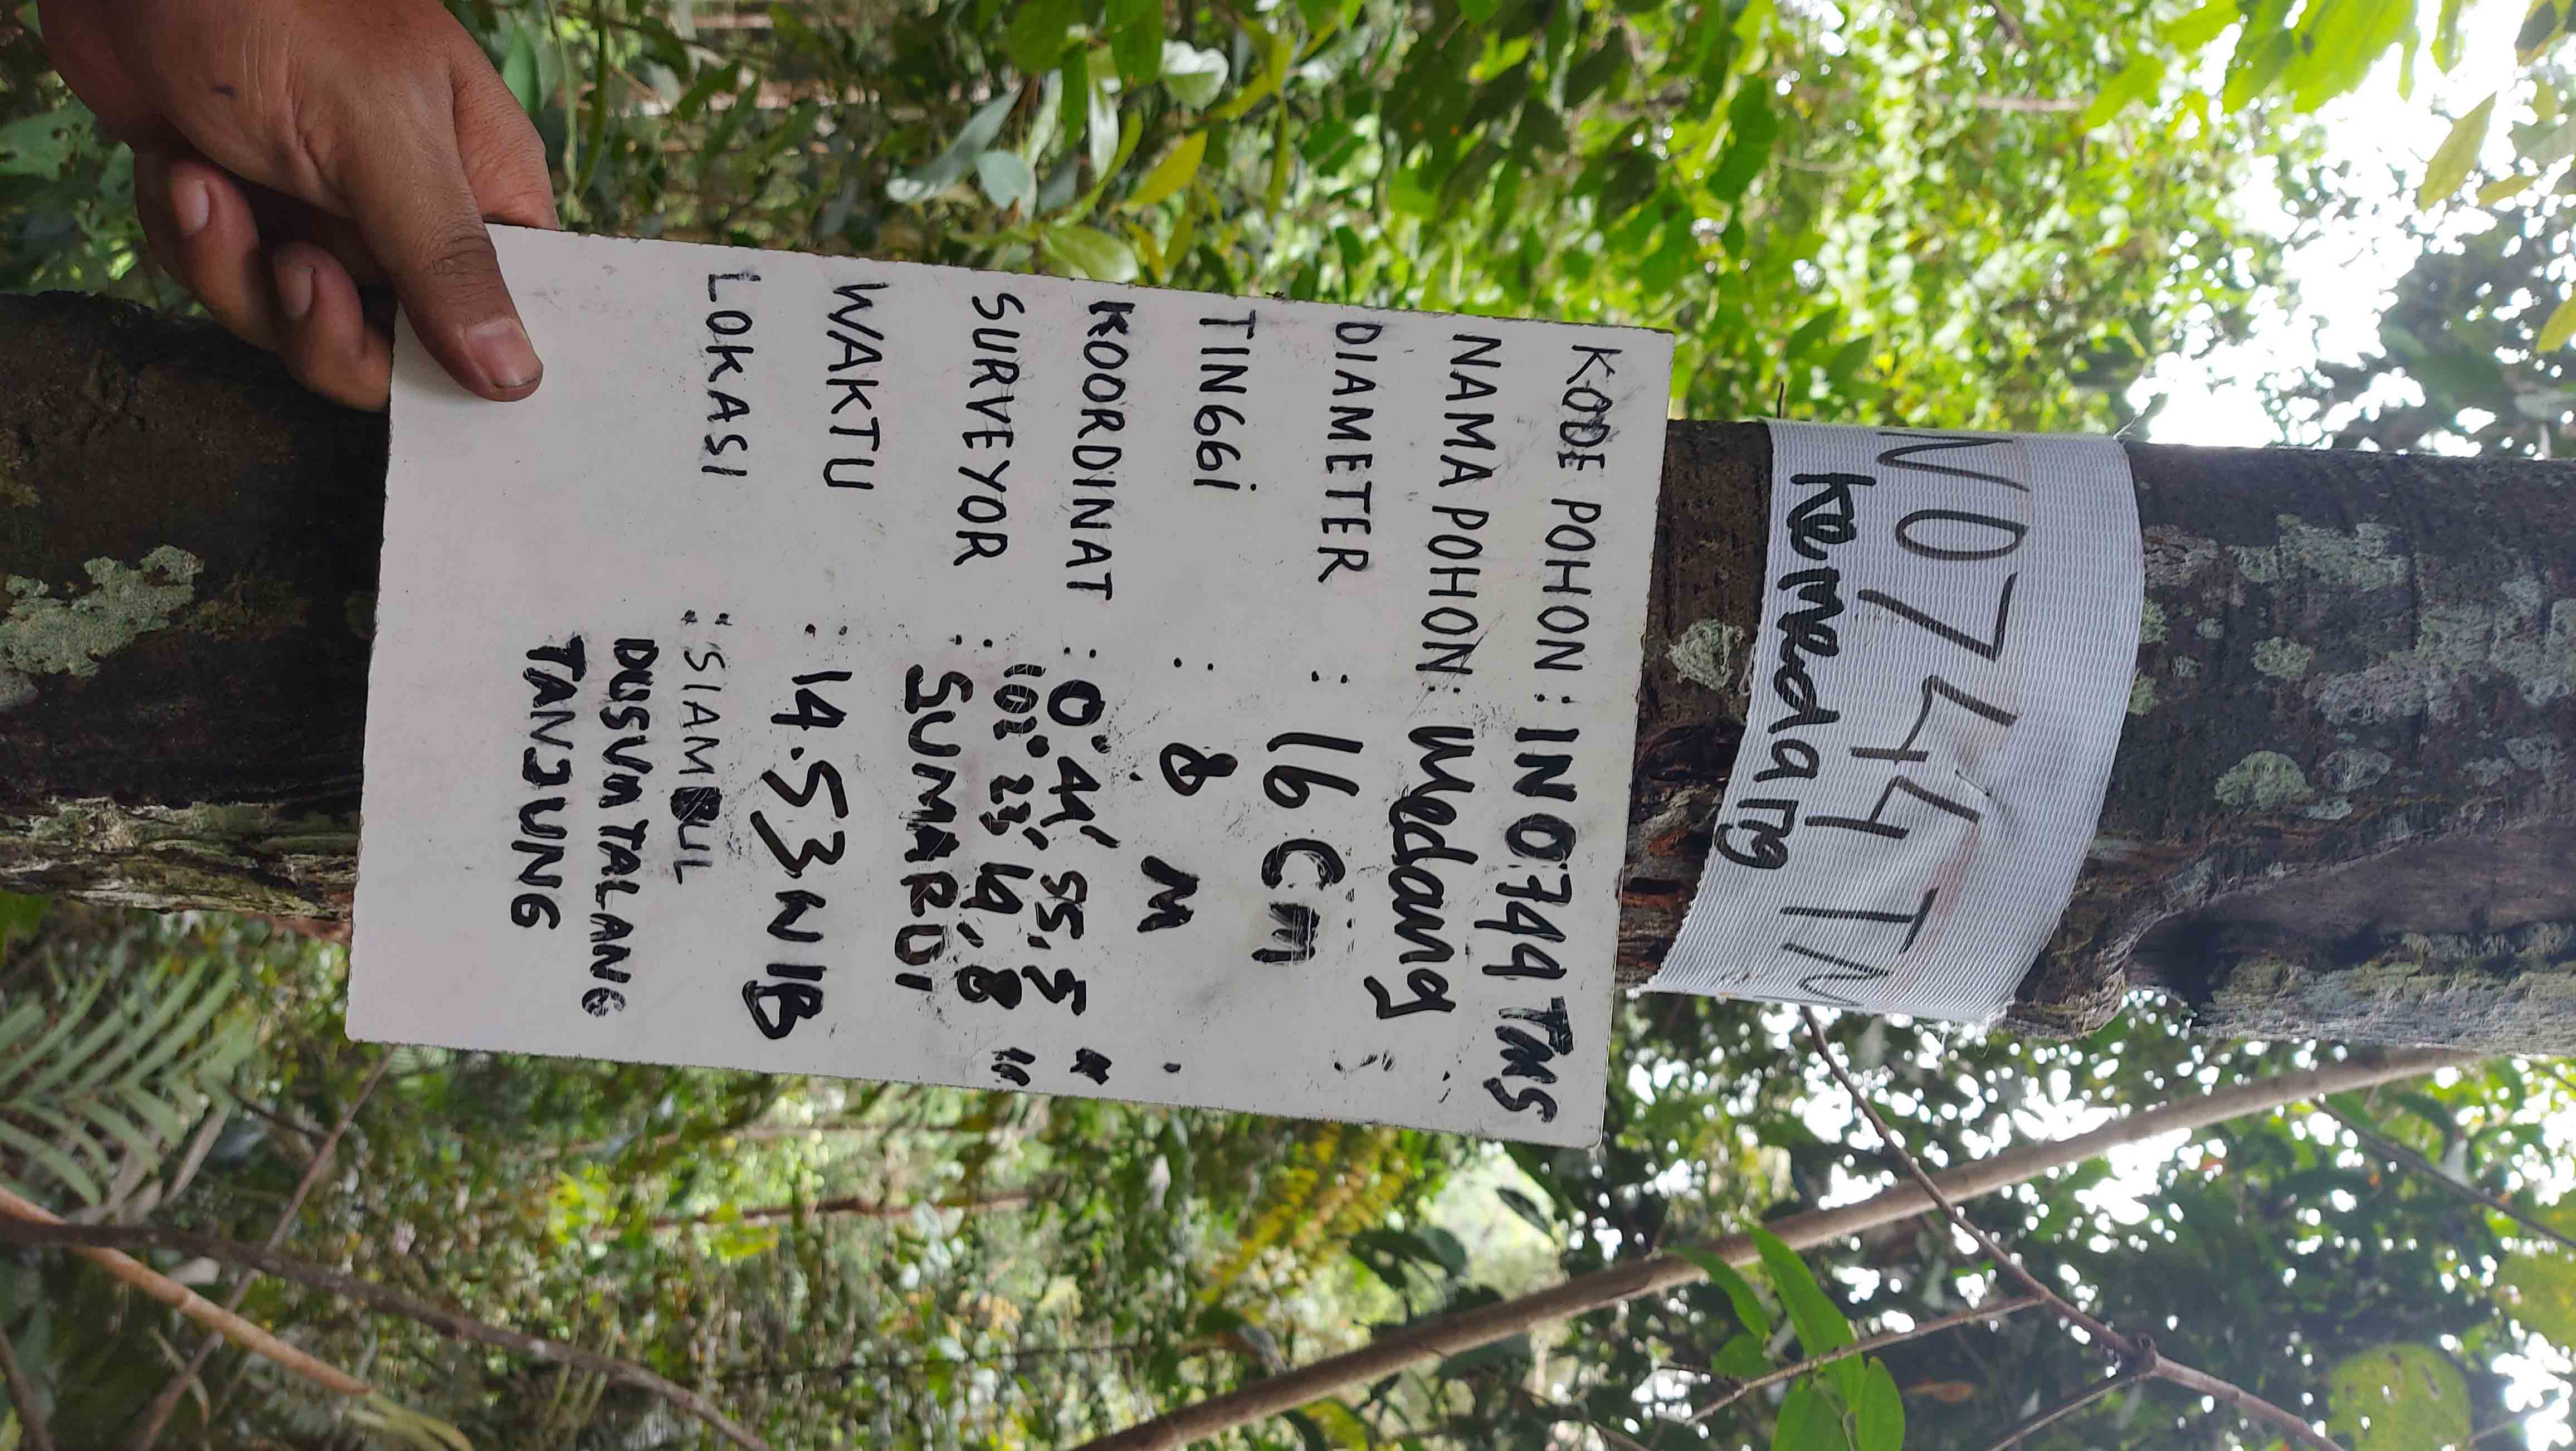 N0744TM
kemedang
KODE POHON : IN0744 TMS
NAMA POHON : Medang
DIAMETER : 16 Cm
TINGGi : 8 M
KOORDINAT : 0° 44', 55,5 "
102° 23' 14,8 "
SURVEYOR : SUMARDI
WAKTU : 14.53 WIB
LOKASI : SIAMBUL
DUSUM TALANG
TANJUNG